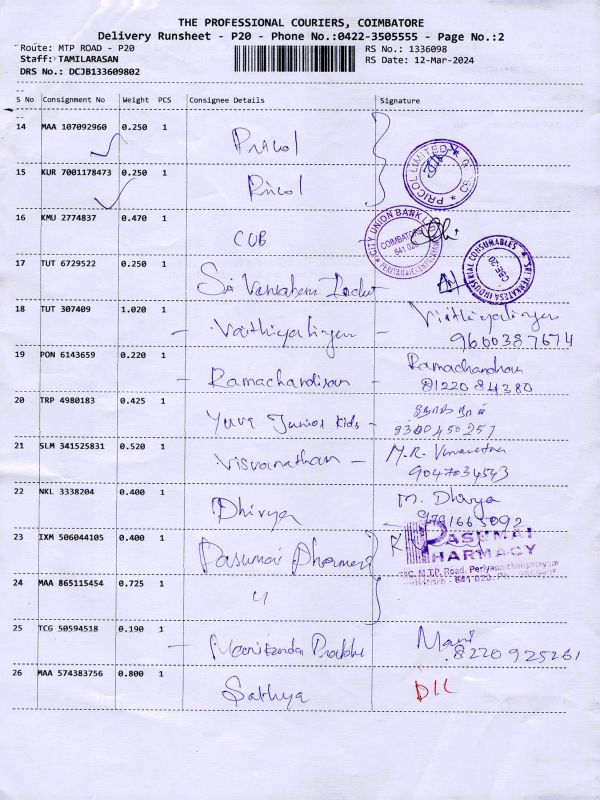 THE PROFESSIONAL COURIERS, COIMBATORE
Delivery Runsheet - P20 - Phone No.:0422-3505555 - Page No.:2
Route: MTP ROAD - P20
RS No.: 1336098
Staff: TAMILARASAN
RS Date: 12-Mar-2024
DRS No.: DCJB133609802
S No Consignment No Weight PCS Consignee Details Signature
14 MAA 107092960 0.250 1 Pricol
15 KUR 7001178473 0.250 1 Pricol
PRICOL LIMITED
16 KMU 2774837 0.470 1 CUB
CITY UNION BANK
COIMBATORE
641 020
17 TUT 6729522 0.250 1 Sri
SRI VENKATESA INDUSTRIAL CONSUMABLES
CBE-20
18 TUT 307409 1.020 1 - Vaithiyalingam - Vaithiyalingam
9600387674
19 PON 6143659 0.220 1 - Ramachandiran - Ramachandran
8122084380
20 TRP 4980183 0.425 1 Yuva Junior Kids -
9300450257
21 SLM 341525831 0.520 1 Visvanathan - M.R.
9047034543
22 NKL 3338204 0.400 1 Dhivya M. Dhivya
9791665092
23 IXM 506044105 0.400 1 Pasumai Pharmacy
PASUMAI
PHARMACY
M.T.P. Road, Periyanaickenpalayam
641 020
24 MAA 865115454 0.725 1 "
25 TCG 50594518 0.190 1 - Manikanda Prabhu Mani
8220925261
26 MAA 574383756 0.800 1 Sathya DIL